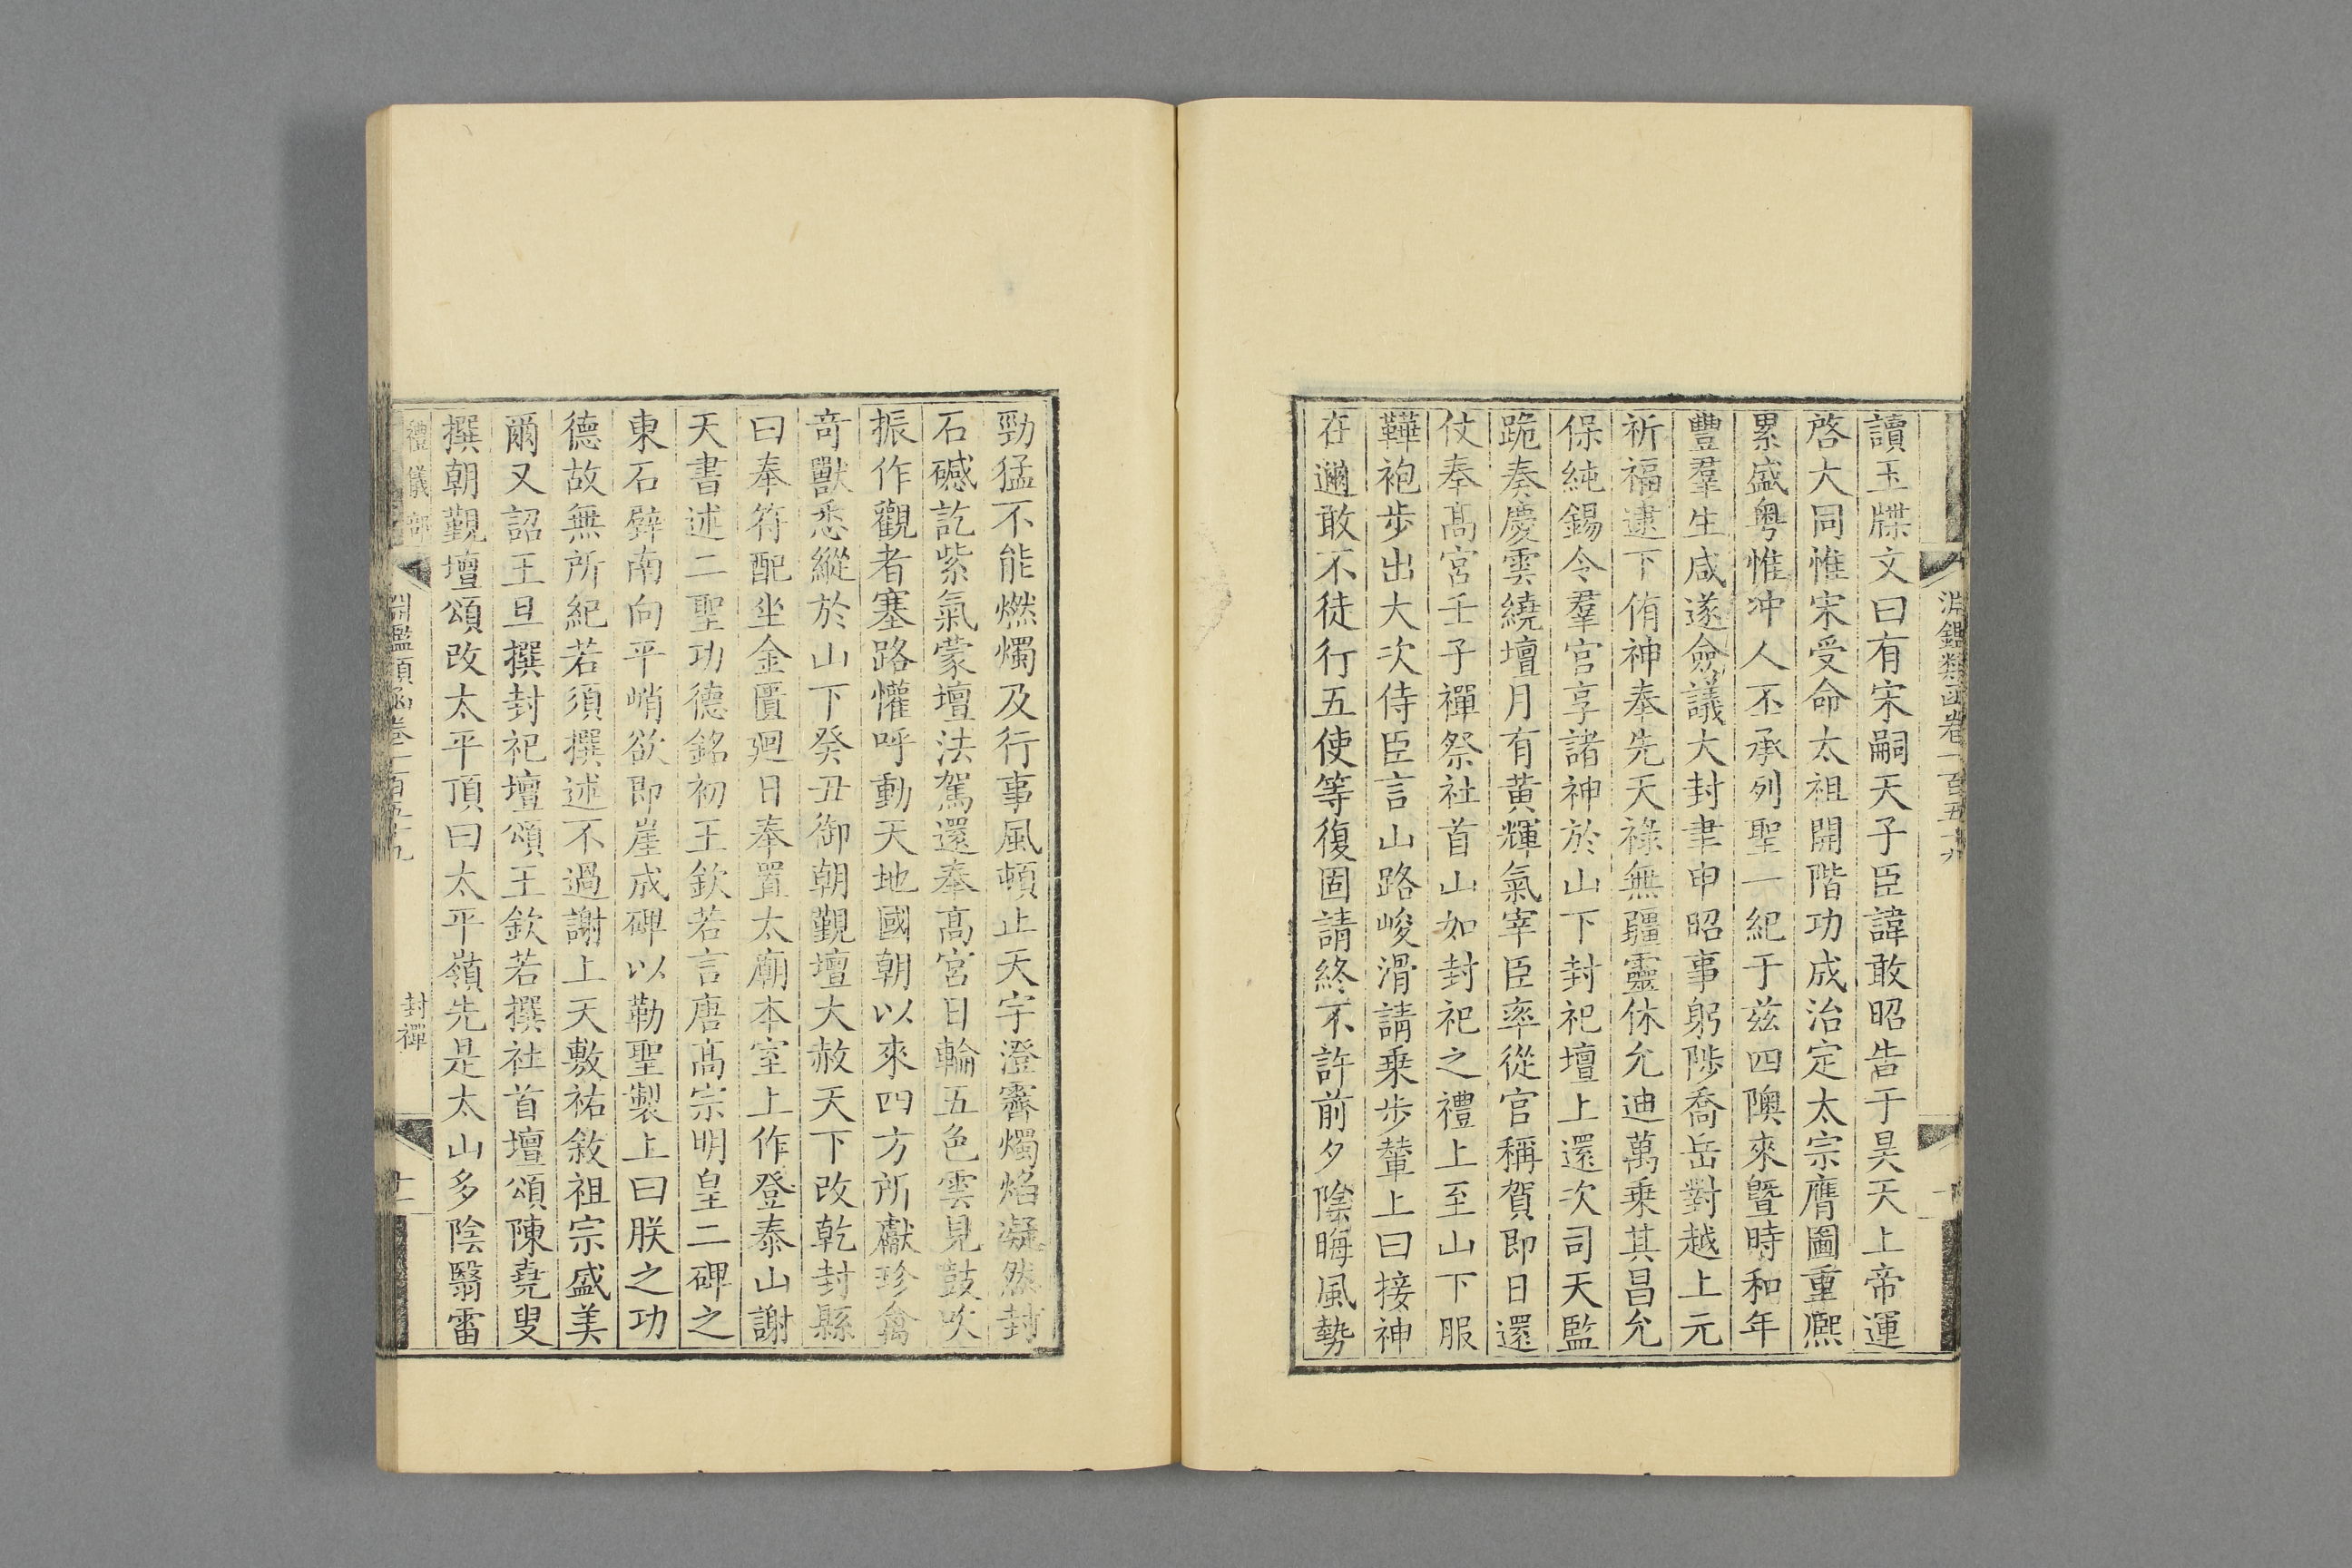 淵鑑類函卷一百五十九
讀玉牒文曰有宋嗣天子臣諱敢昭告于昊天上帝運
啓大同惟宋受命太祖開階功成治定太宗膺圖重熈
累盛粤惟冲人丕承列聖一紀于兹四隩來曁時和年
豐羣生咸遂僉議大封聿申昭事躬陟喬岳對越上元
祈福逮下侑神奉先天祿無疆靈休允迪萬乗其昌允
保純錫令羣官享諸神於山下封祀壇上還次司天監
跪奏慶雲繞壇月有黃輝氣宰臣率從官稱賀即日還
仗奉髙宮壬子禪祭社首山如封祀之禮上至山下服
鞾袍步出大次侍臣言山路峻滑請乗步輦上曰接神
在邇敢不徒行五使等復固請終不許前夕陰晦風勢
勁猛不能燃燭及行事風頓止天宇澄霽燭焰凝然封
石𥗫訖紫氣蒙壇法駕還奉髙宮日輪五色雲見鼓吹
振作觀者塞路懽呼動天地國朝以來四方所獻珍禽
竒獸悉縱於山下癸丑御朝覲壇大赦天下改乾封縣
曰奉符配坐金匱廻日奉置太廟本室上作登泰山謝
天書述二聖功德銘初王欽若言唐髙宗明皇二碑之
東石壁南向平峭欲即崖成碑以勒聖製上曰朕之功
德故無所紀若須撰述不過謝上天敷祐敘祖宗盛美
爾又詔王旦撰封祀壇頌王欽若撰社首壇頌陳堯叟
撰朝覲壇頌改太平頂曰太平嶺先是太山多陰翳雷
禮儀部
淵鑑類函卷一百五十九
封禪
十一